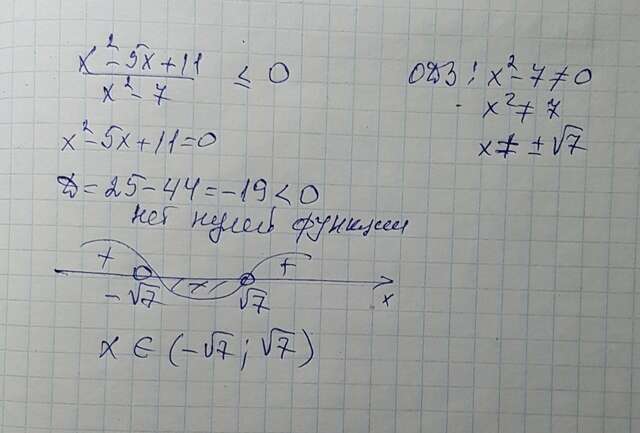 x² - 5x + 11 / x² - 7 ≤ 0
ОДЗ: x² - 7 ≠ 0
x² ≠ 7
x ≠ ± √7
x² - 5x + 11 = 0
D = 25 - 44 = -19 < 0
нет нулей функции
+ - +
-√7 √7 x
x ∈ (-√7; √7)